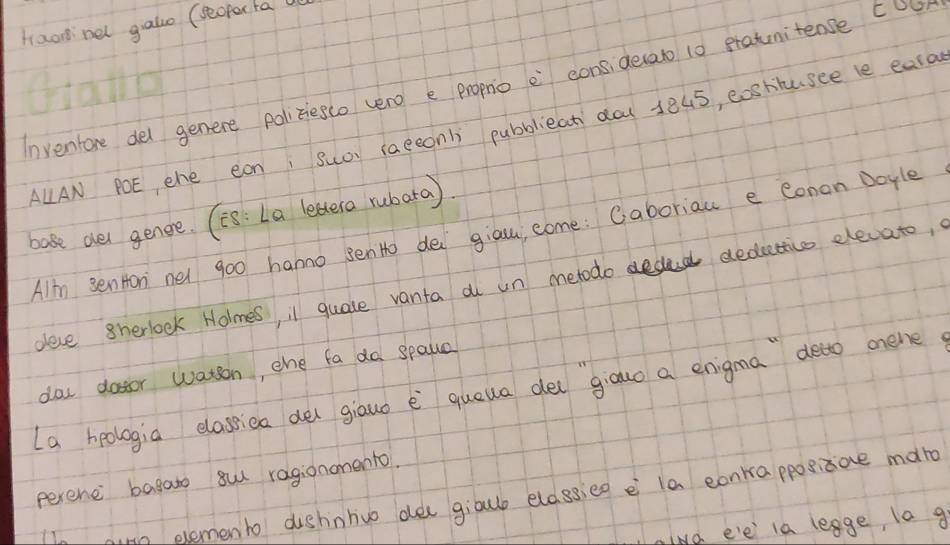 nel giallo (scoperta
Giallo
Inventore del genere poliziesco vero e proprio è considerato lo statunitense
ALLAN POE, che con i suoi racconti pubblicati dal 1845, costituisce le
base del genere. (ES: La lettera rubata).
Altri scrittori nel 900 hanno scritto dei gialli, come: Gaboriau e Conan Doyle
Sherlock Holmes, il quale vanta di un metodo deduttivo elevato,
dal dottor Watson, che fa da spalla
La tipologia classica del giallo è quella del "giallo a enigma" detto anche
perchè basato sul ragionamento.
elemento distintivo del giallo classico è la contrapposizione
c'è la legge, la